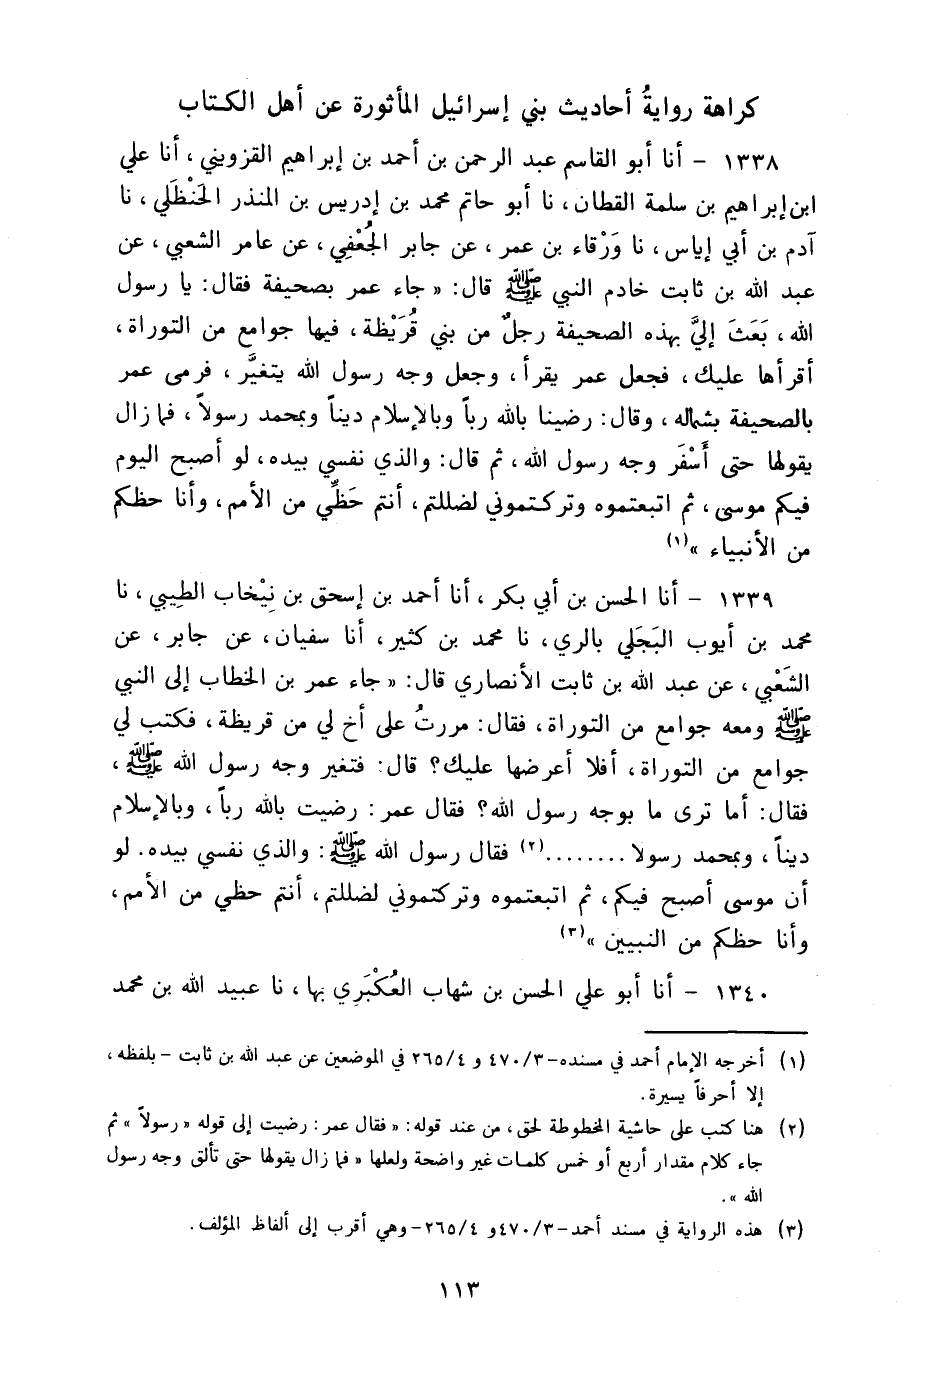 كراهة روايةُ أحاديث بني إسرائيل المأثورة عن أهل الكتاب
١٣٣٨ - أنا أبو القاسم عبد الرحمن بن أحمد بن إبراهيم القزويني، أنا علي
ابن إبراهيم بن سلمة القطان، نا أبو حاتم محمد بن إدريس بن المنذر الحَنْظَلي، نا
آدم بن أبي إياس، نا وَرْقاء بن عمر، عن جابر الجُعْفي، عن عامر الشعبي، عن
عبد الله بن ثابت خادم النبي ﷺ قال: « جاء عمر بصحيفة فقال: يا رسول
الله، بَعَثَ إليَّ بهذه الصحيفة رجلٌ من بني قُرَيْظة، فيها جوامع من التوراة،
أقرأها عليك، فجعل عمر يقرأ، وجعل وجه رسول الله يتغيَّر، فرمى عمر
بالصحيفة بشماله، وقال: رضينا بالله رباً وبالإسلام ديناً وبمحمد رسولاً، فما زال
يقولها حتى أَسْفَر وجه رسول الله، ثم قال: والذي نفسي بيده، لو أصبح اليوم
فيكم موسى، ثم اتبعتموه وتركتموني لضللتم، أنتم حَظِّي من الأمم، وأنا حظكم
من الأنبياء »(١)
١٣٣٩ - أنا الحسن بن أبي بكر، أنا أحمد بن إسحق بن نِيْخاب الطِيبي، نا
محمد بن أيوب البَجَلي بالري، نا محمد بن كثير، أنا سفيان، عن جابر، عن
الشَعْبي، عن عبد الله بن ثابت الأنصاري قال: « جاء عمر بن الخطاب إلى النبي
ﷺ ومعه جوامع من التوراة، فقال: مررتُ على أخ لي من قريظة، فكتب لي
جوامع من التوراة، أفلا أعرضها عليك؟ قال: فتغير وجه رسول الله ﷺ،
فقال: أما ترى ما بوجه رسول الله؟ فقال عمر: رضيت بالله رباً، وبالإسلام
ديناً، وبمحمد رسولا ........(٢) فقال رسول الله ﷺ: والذي نفسي بيده. لو
أن موسى أصبح فيكم، ثم اتبعتموه وتركتموني لضللتم، أنتم حظي من الأمم،
وأنا حظكم من النبيين »(٣)
١٣٤٠ - أنا أبو علي الحسن بن شهاب العُكْبَري بها، نا عبيد الله بن محمد
(١) أخرجه الإمام أحمد في مسنده-٤٧٠/٣ و ٢٦٥/٤ في الموضعين عن عبد الله بن ثابت - بلفظه،
إلا أحرفاً يسيرة.
(٢) هنا كتب على حاشية المخطوطة لحق، من عند قوله: « فقال عمر: رضيت إلى قوله « رسولاً » ثم
جاء كلام مقدار أربع أو خمس كلمات غير واضحة ولعلها « فما زال يقولها حتى تألق وجه رسول
الله ».
(٣) هذه الرواية في مسند أحمد-٤٧٠/٣و ٢٦٥/٤-وهي أقرب إلى ألفاظ المؤلف.
١١٣